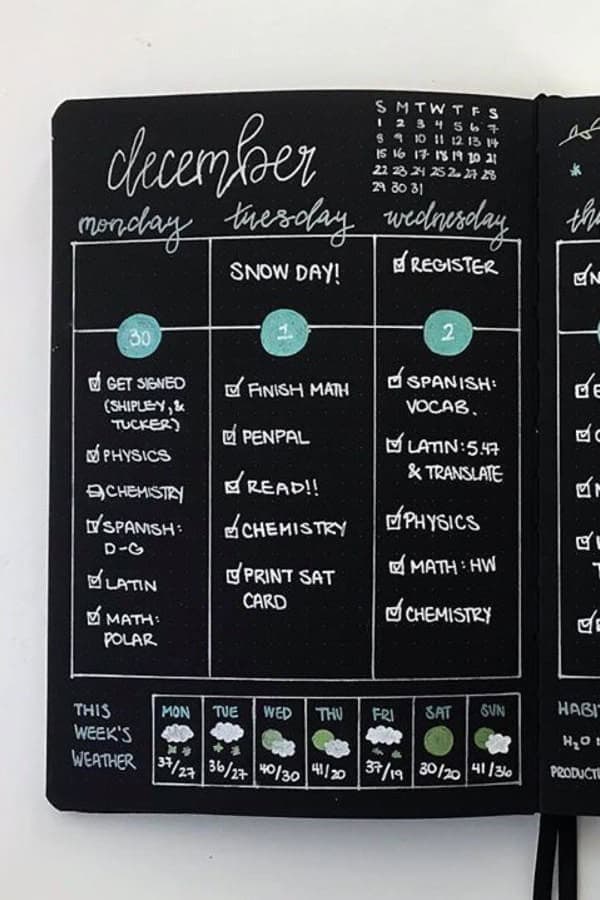 december
S M T W T F S
1 2 3 4 5 6 7
8 9 10 11 12 13 14
15 16 17 18 19 20 21
22 23 24 25 26 27 28
29 30 31
monday tuesday wednesday
SNOW DAY!
REGISTER
30
GET SIGNED
(SHIPLEY, &
TUCKER)
PHYSICS
CHEMISTRY
SPANISH:
D-G
LATIN
MATH:
POLAR
1
FINISH MATH
PENPAL
READ!!
CHEMISTRY
PRINT SAT
CARD
2
SPANISH:
VOCAB.
LATIN: 5.47
& TRANSLATE
PHYSICS
MATH: HW
CHEMISTRY
THIS
WEEK'S
WEATHER
MON TUE WED THU FRI SAT SUN
37/27 36/27 40/30 41/20 37/19 30/20 41/36
th
HABI
H₂O
PRODUCT